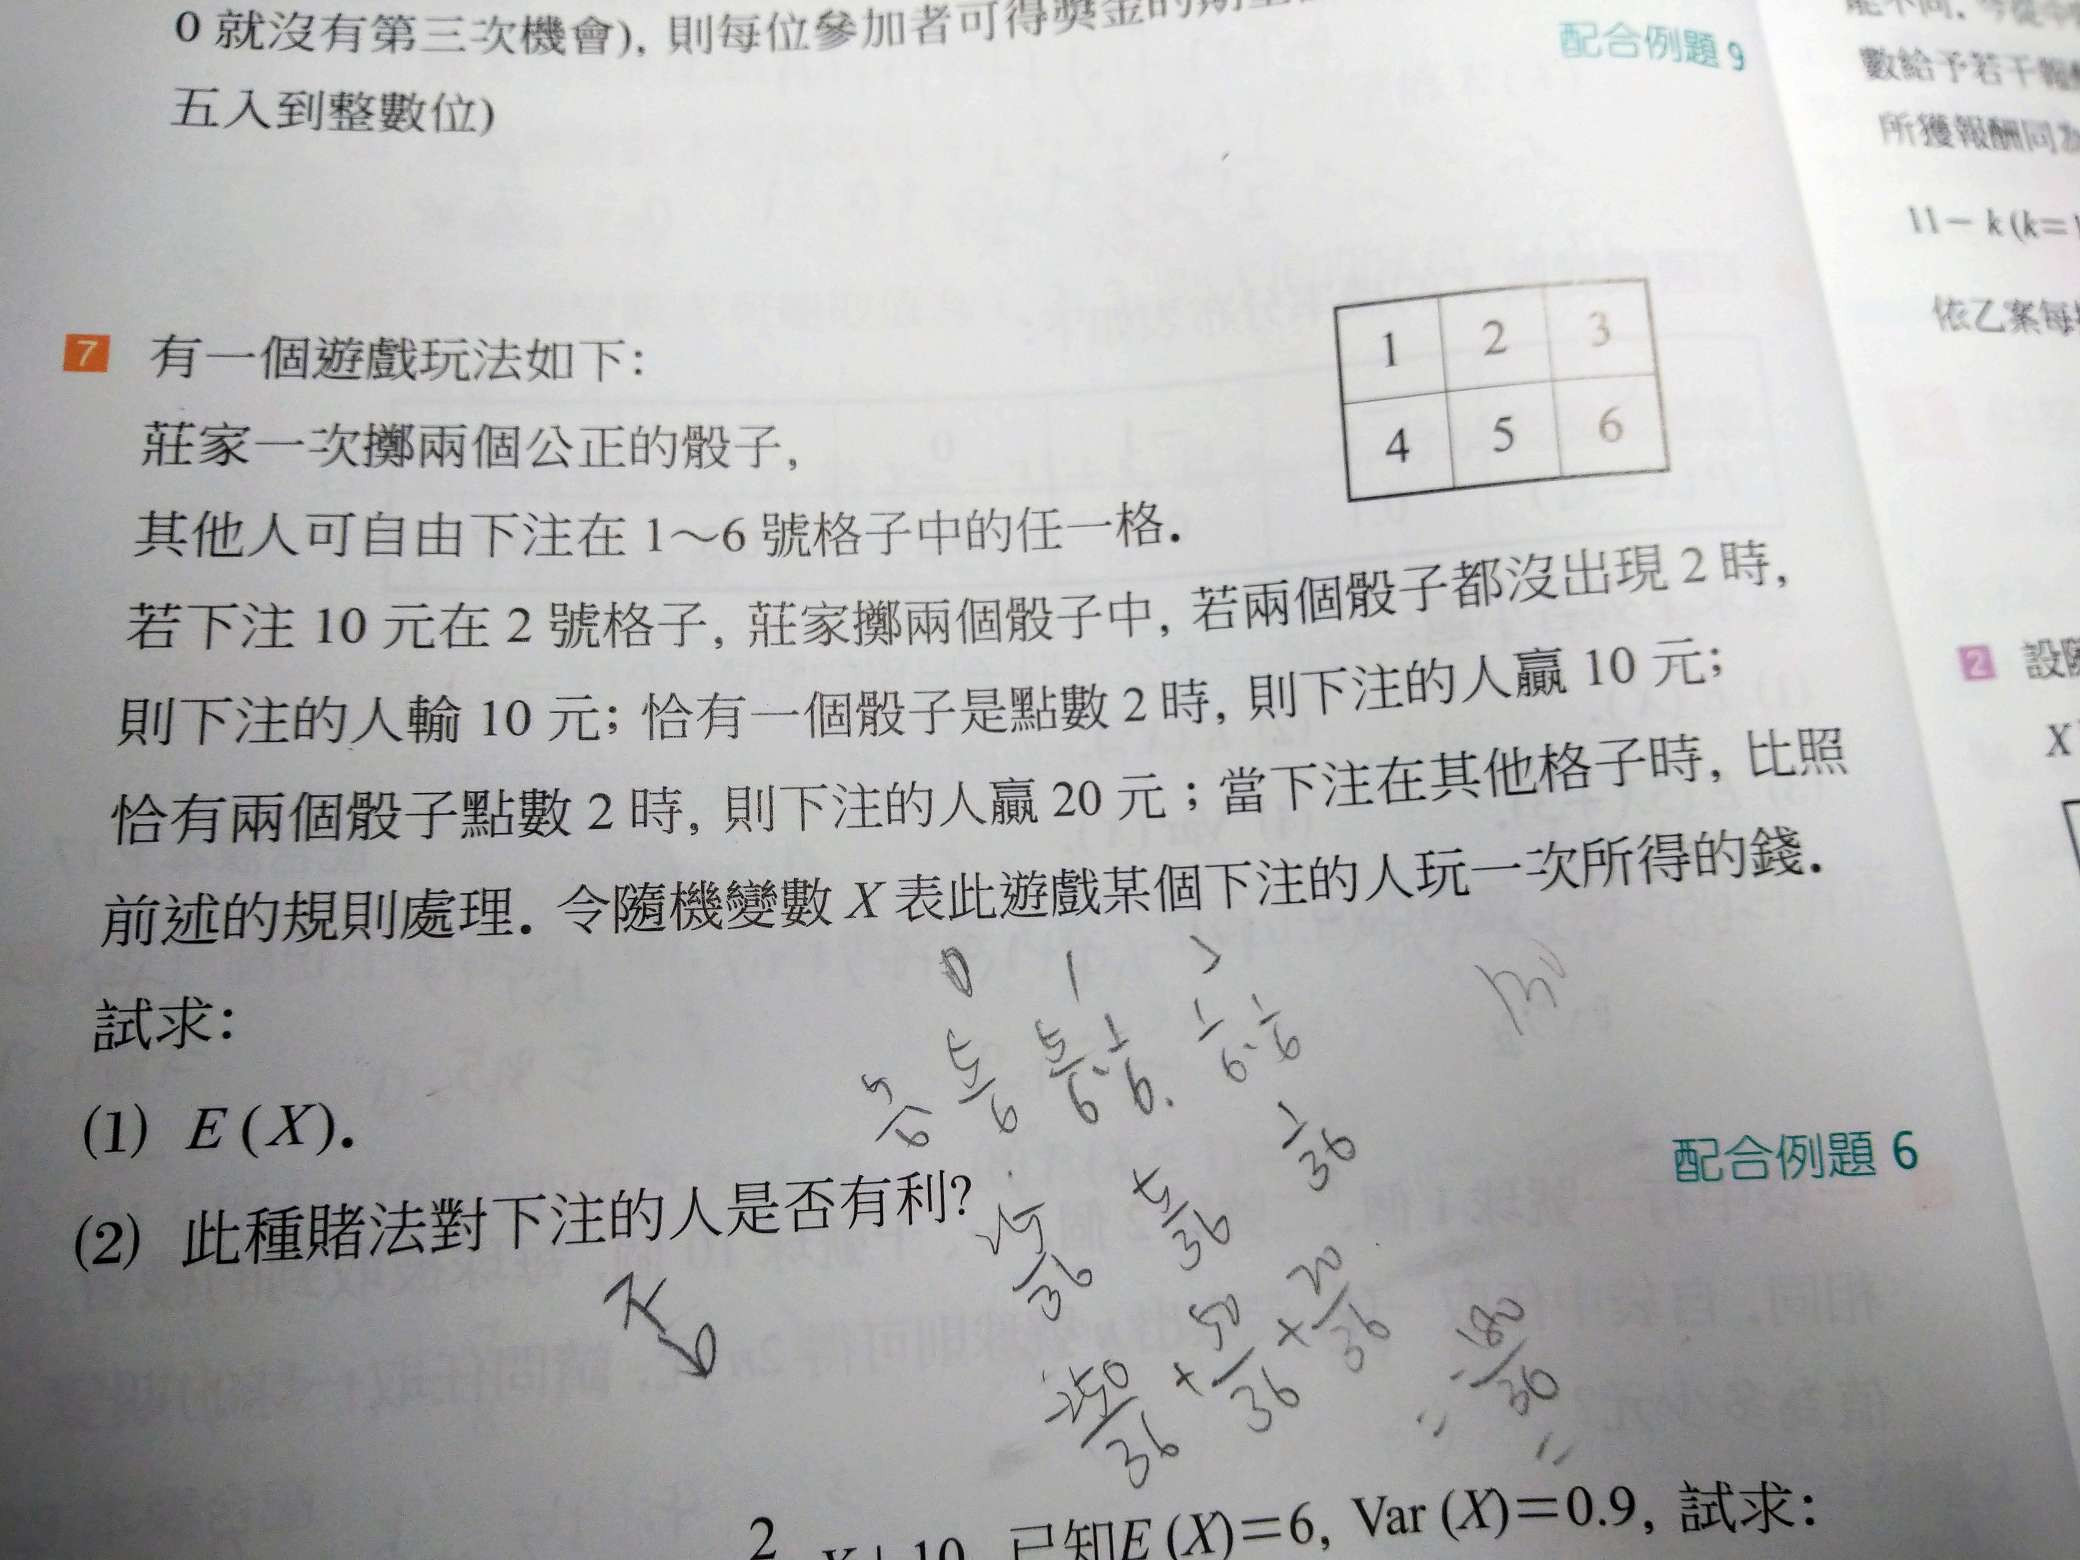 0 就沒有第三次機會), 則每位參加者可得獎金的
五入到整數位)
配合例題 9
數給予若干報
所獲報酬同為
11－k (k=1
依乙案每
7 有一個遊戲玩法如下:
莊家一次擲兩個公正的骰子,
其他人可自由下注在 1～6 號格子中的任一格.
若下注 10 元在 2 號格子, 莊家擲兩個骰子中, 若兩個骰子都沒出現 2 時,
則下注的人輸 10 元; 恰有一個骰子是點數 2 時, 則下注的人贏 10 元;
恰有兩個骰子點數 2 時, 則下注的人贏 20 元; 當下注在其他格子時, 比照
前述的規則處理. 令隨機變數 X 表此遊戲某個下注的人玩一次所得的錢.
試求:
(1) E (X).
(2) 此種賭法對下注的人是否有利?
配合例題 6
1 2 3
4 5 6
0 1 2
5/6 5/6 5/6 · 1/6 1/6 · 1/6
25/36 5/36 1/36
-250/36 + 50/36 + 20/36 = -180/36
不
2 設
X
已知E (X)=6, Var (X)=0.9, 試求: